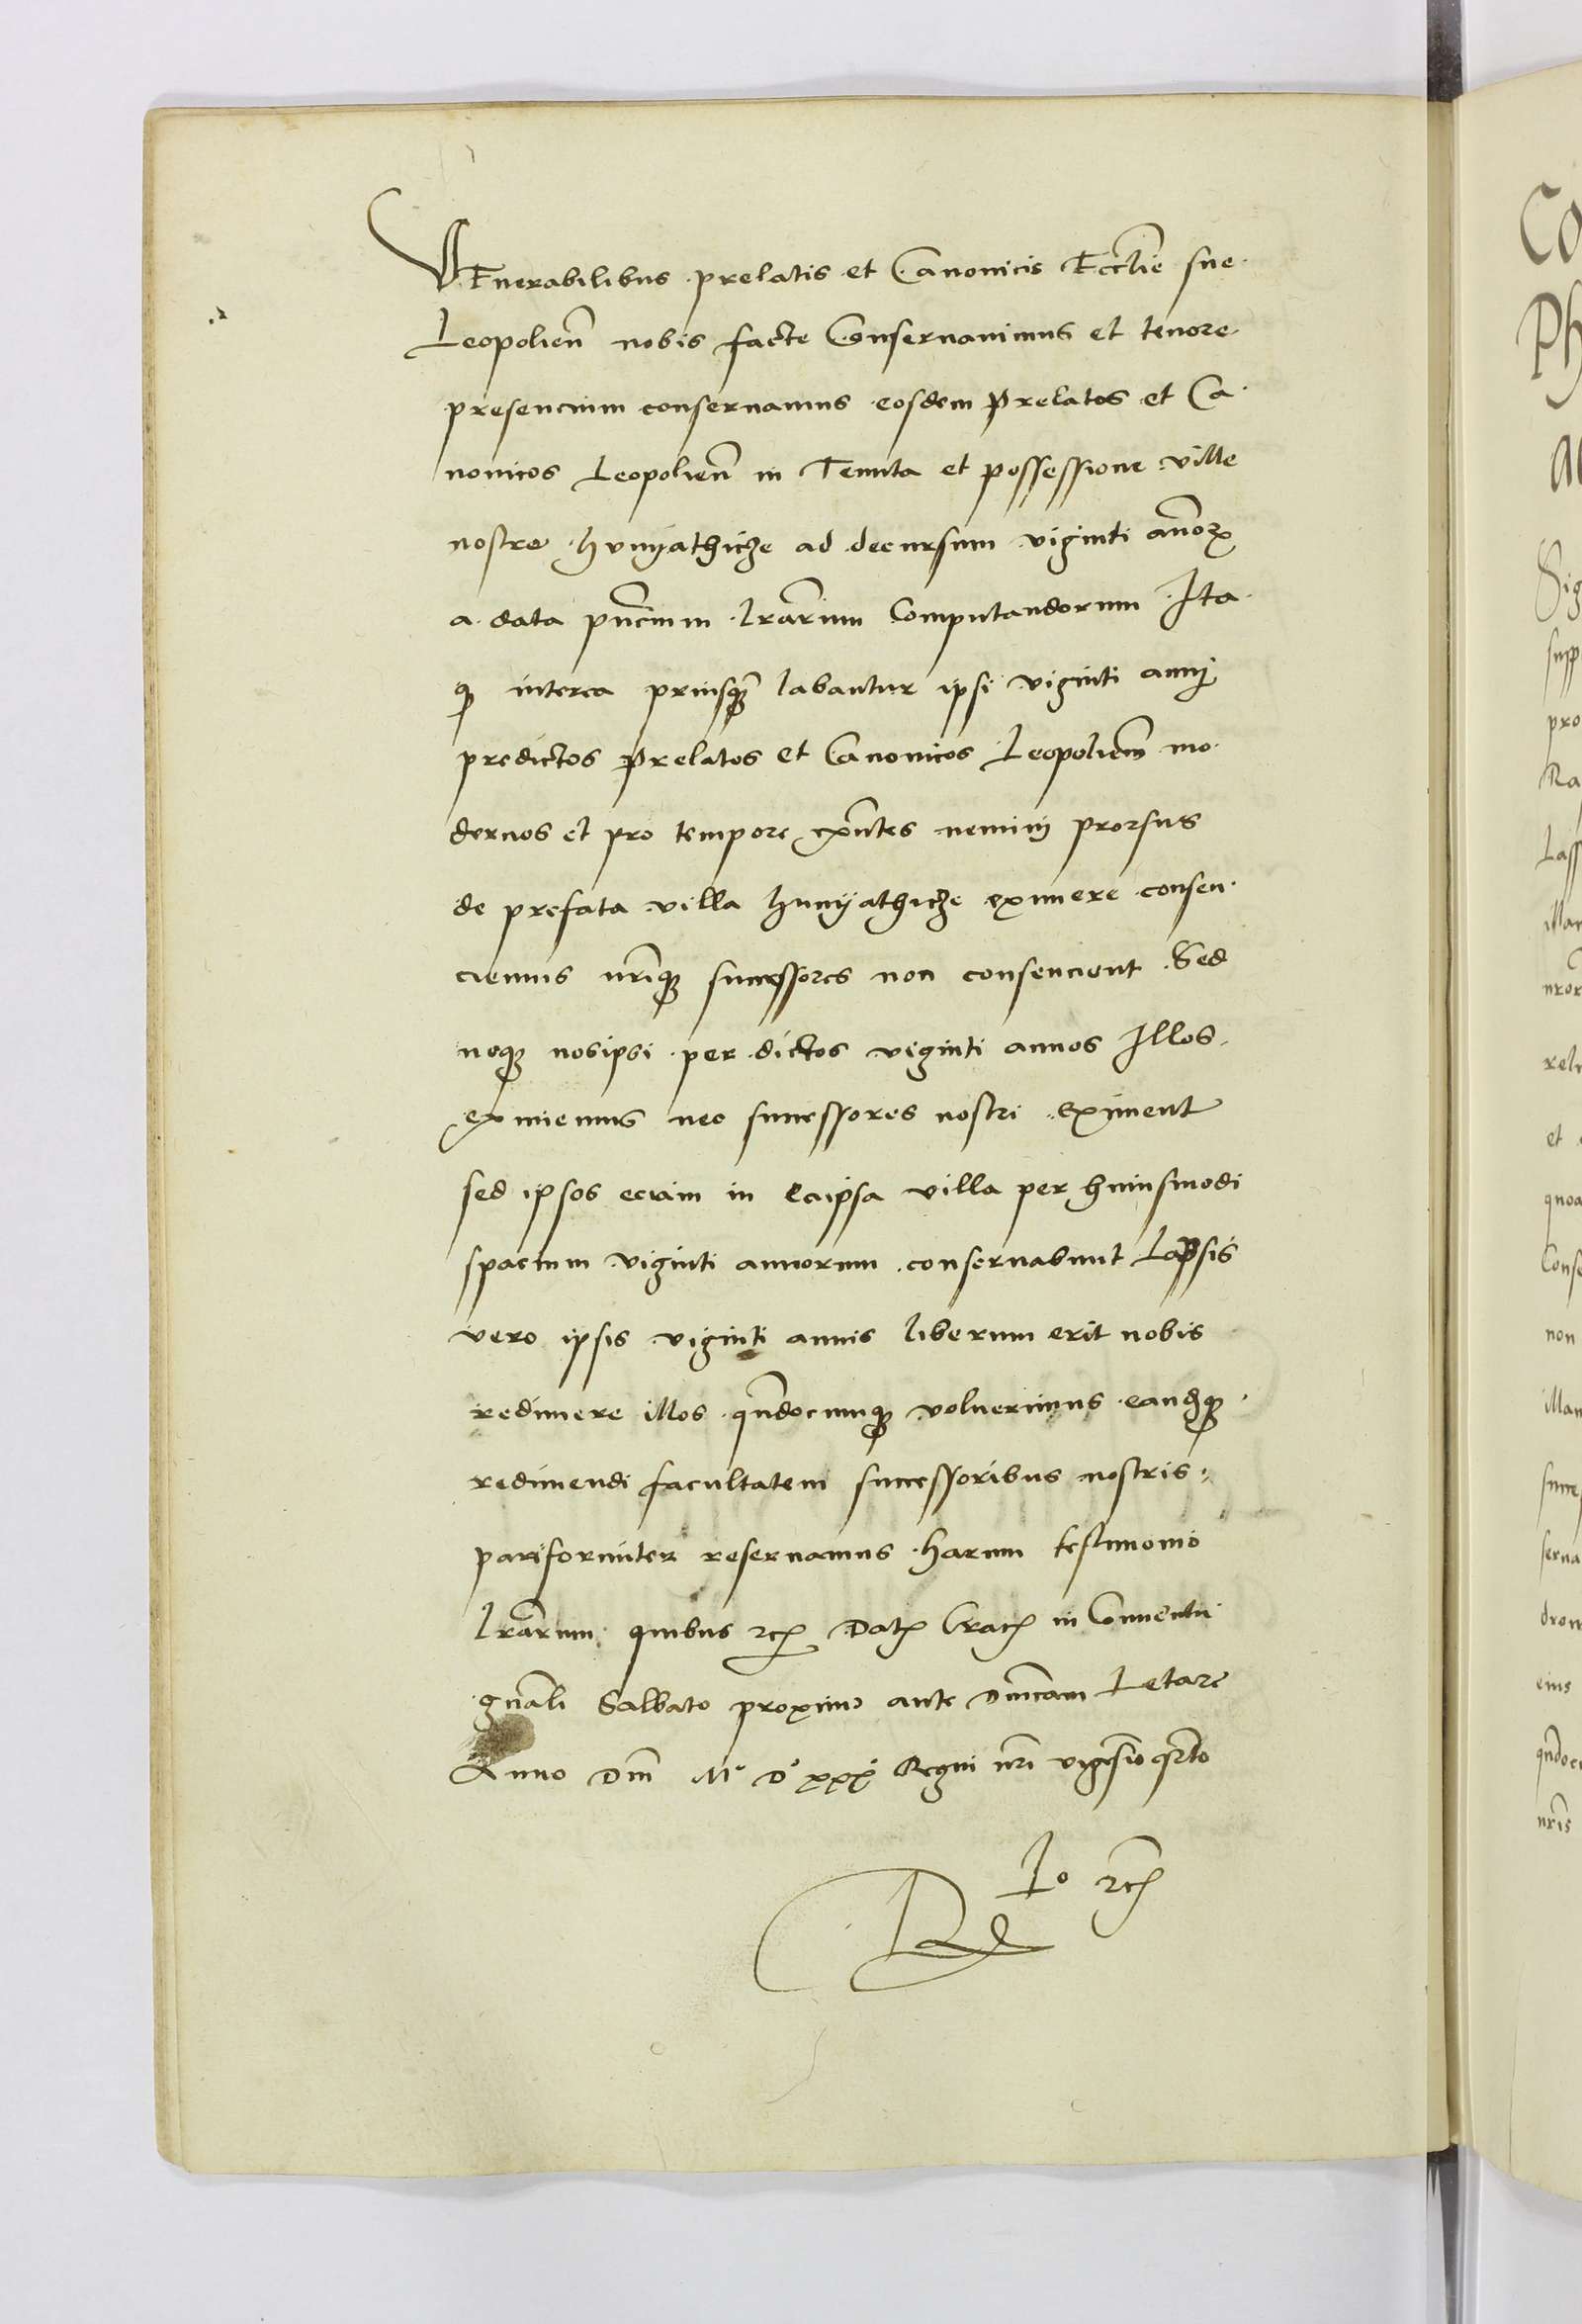 VEnerabilibus prelatis et Canonicis Eccl̄ie sue
Leopolien̄ nobis facte Conservavimus et tenore
presencium conservamus eosdem prelatos et Ca
nonicos Leopolien̄ in Tenuta et possessione ville
nostre hvnyathicze ad decursum viginti an̄oꝝ
a data pn̄cium lrārum Computandorum Ita
ꝙ interea priusqꝫ labantur ipsi viginti annj
predictos prelatos et Canonicos Leopolien̄ mo
dernos et pro tempore exn̄tes nemini prorsus
de prefata villa hunyathicze eximere consen
ciemus nr̄iqꝫ successores non consencient Sed
neqꝫ nosipsi per dictos viginti annos Illos
eximiemus nec successores nostri eximent
sed ipsos eciam in eaipsa villa per huiusmodi
spacium viginti annorum conservabunt Lapsis
vero ipsis viginti annis liberum erit nobis
redimere illos qn̄documqꝫ voluerimus eandēqꝫ
redimendi facultatem successoribus nostris
pariformiter reservamus harum testimonio
lrārum quibus etc̄ Dat̄ Crac̄ in Conventu
gn̄ali Sabbato proximo ante Dn̄icam Letare
Anno Dn̄i Mº Dº xxxº Regni nr̄i vigesīo qr̄to
Io etc̄
Co
Ph
Sig
supp
pro
Ra
Lass
illan
nror
relu
et
quoa
Conse
non
illan
succe
serva
eius
qn̄doc
nr̄is